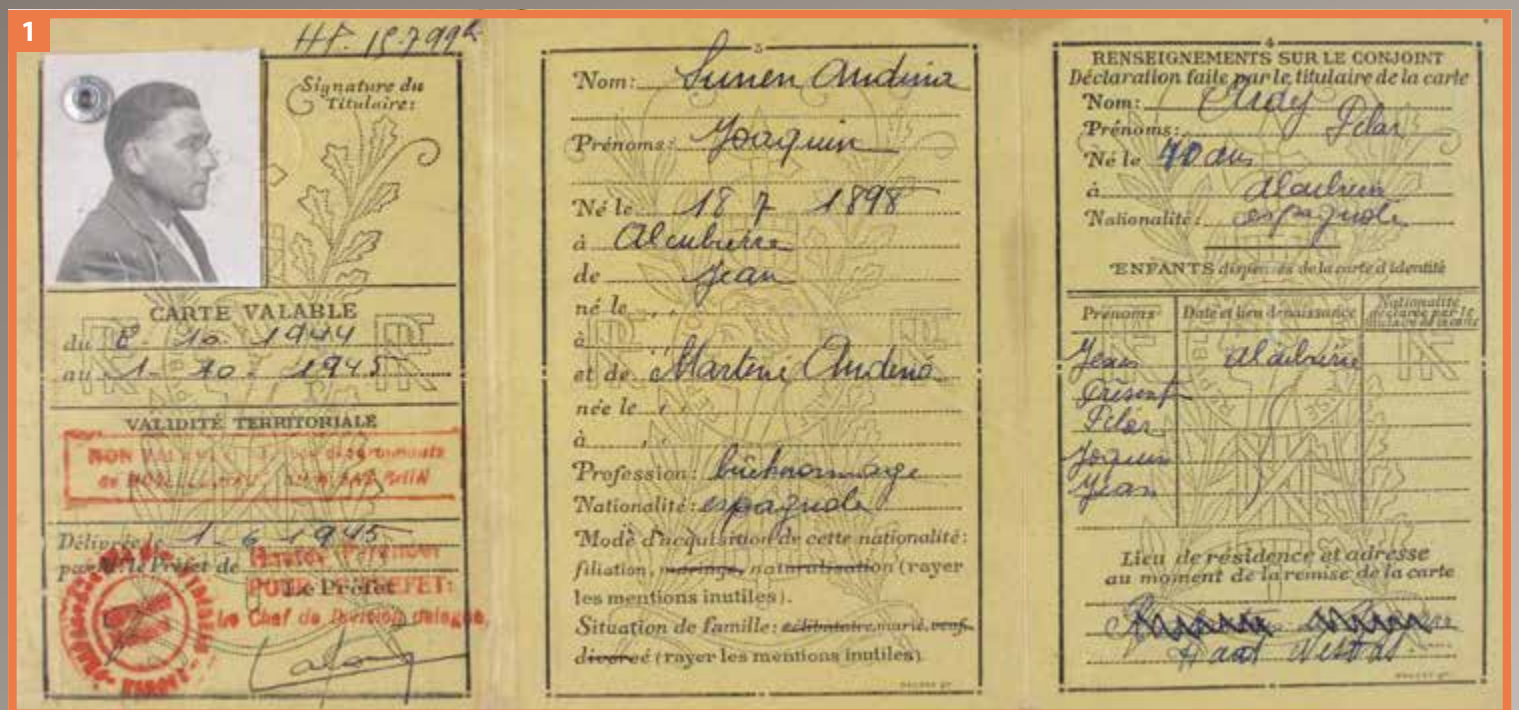 1
Signature du
Titulaire:
CARTE VALABLE
du 2. 10. 1944
au 1. 10. 1945
VALIDITÉ TERRITORIALE
NON
Délivrée le 1 6 1945
par M. le Préfet de Hautes Pyrénées
POUR LE PREFET:
Le Préfet
Le Chef de Division délégué,
3
Nom: Sunen Andina
Prénoms: Joaquin
Né le 18 7 1898
à Alcubierre
de Jean
né le
à
et de Martine Andina
née le
à
Profession: bûcheronnage
Nationalité: espagnole
Mode d'acquisition de cette nationalité:
filiation, mariage, naturalisation (rayer
les mentions inutiles).
Situation de famille: célibataire, marié, veuf,
divorcé (rayer les mentions inutiles)
4
RENSEIGNEMENTS SUR LE CONJOINT
Déclaration faite par le titulaire de la carte
Nom:
Prénoms: Pilar
Né le 40 ans
à
Nationalité: espagnole
ENFANTS dispensés de la carte d'identité
Prénoms Date et lieu de naissance Nationalité déclarée par le titulaire de la carte
Jean Alcubierre
Pilar
Joquin
Jean
Lieu de résidence et adresse
au moment de la remise de la carte